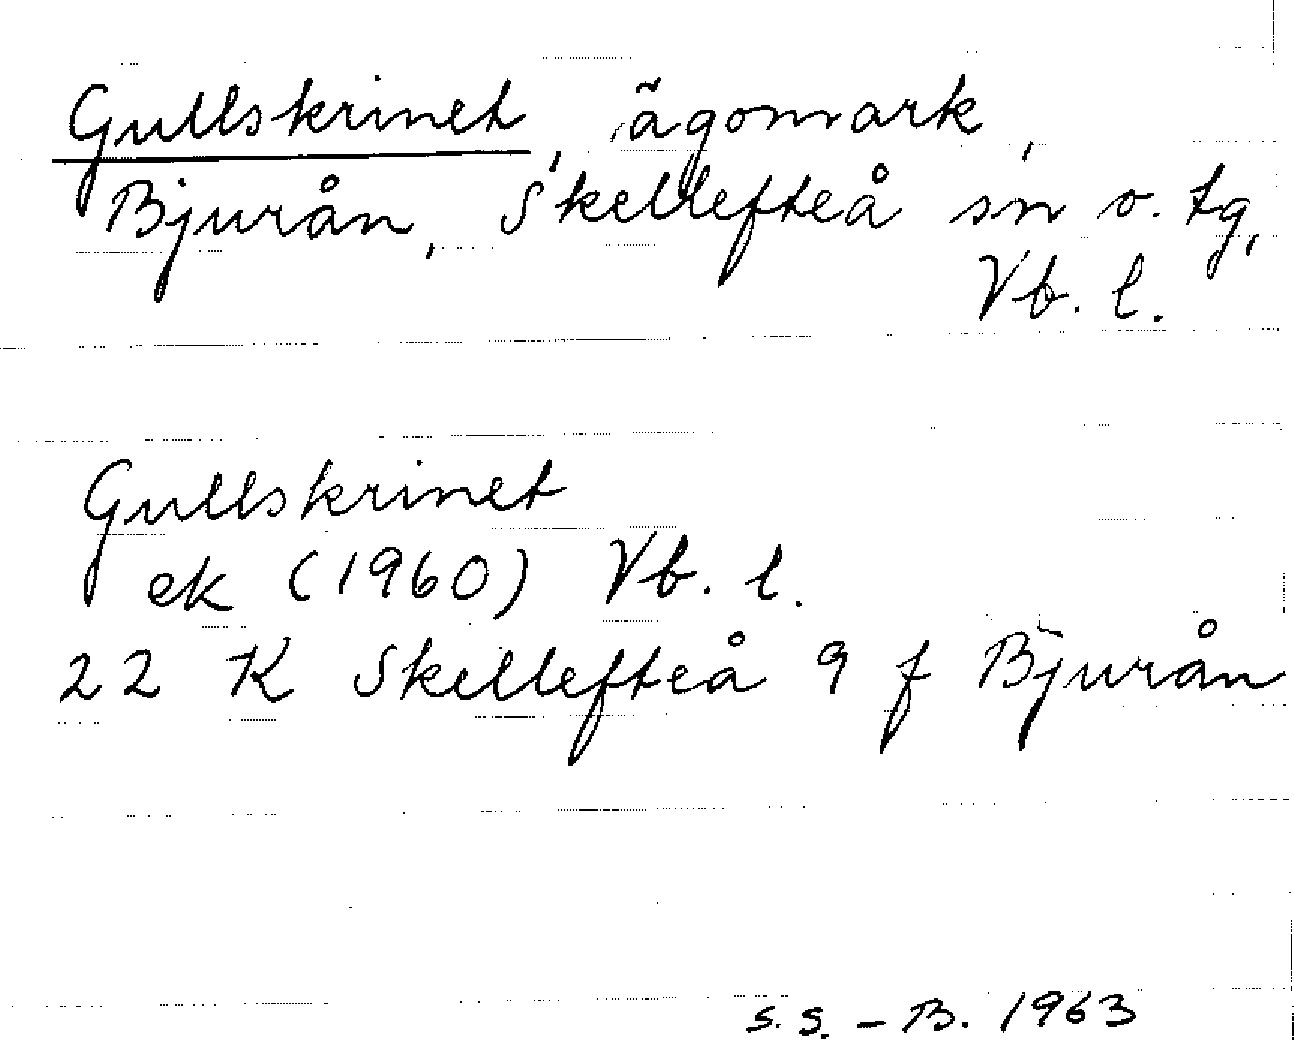 Gullskrinet, ägomark,
Bjurån, Skellefteå sn o. tg,
Vb. l.
Gullskrinet
ek (1960) Vb. l.
22 K Skellefteå 9 f Bjurån
S.S. – B. 1963